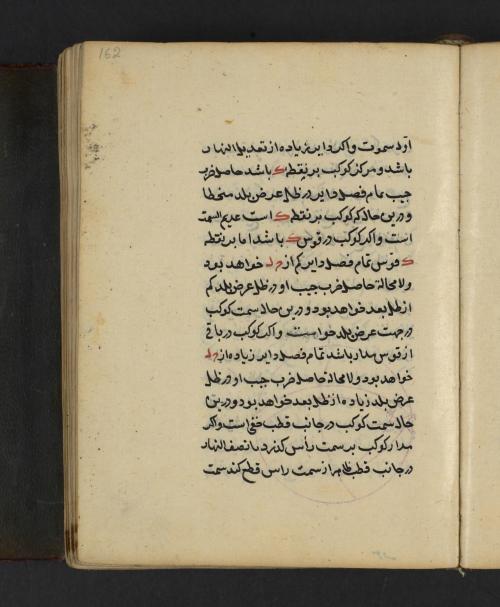 162
اول سموت واکر دایر زیاده از تعدیل النهار
باشد و مرکز کوکب بر نقطه ک باشد حاصل ضرب
جیب تمام فصل دایر در ظل عرض بلد منحطا
و درین حال که کوکب بر نقطه ک است عدیم السمت
است واکر کوکب در قوس ک باشد اما بر نقطه
ک قوس تمام فصل دایر کم از خواهد بود
ولا محاله حاصل ضرب جیب او در ظل عرض بلد کم
از ظل بعد خواهد بود و درین حال سمت کوکب
در جهت عرض بلد خواست واکر کوکب در باقی
از قوس مدار باشد تمام فصل دایر زیاده از
خواهد بود ولا محاله حاصل ضرب جیب او در ظل
عرض بلد زیاده از ظل بعد خواهد بود و درین
حال سمت کوکب در جانب قطب خفی است واکر
مدار کوکب بر سمت رأس کذرد نصف النهار
در جانب قطب ظاهر از سمت راس قطع کند سمت